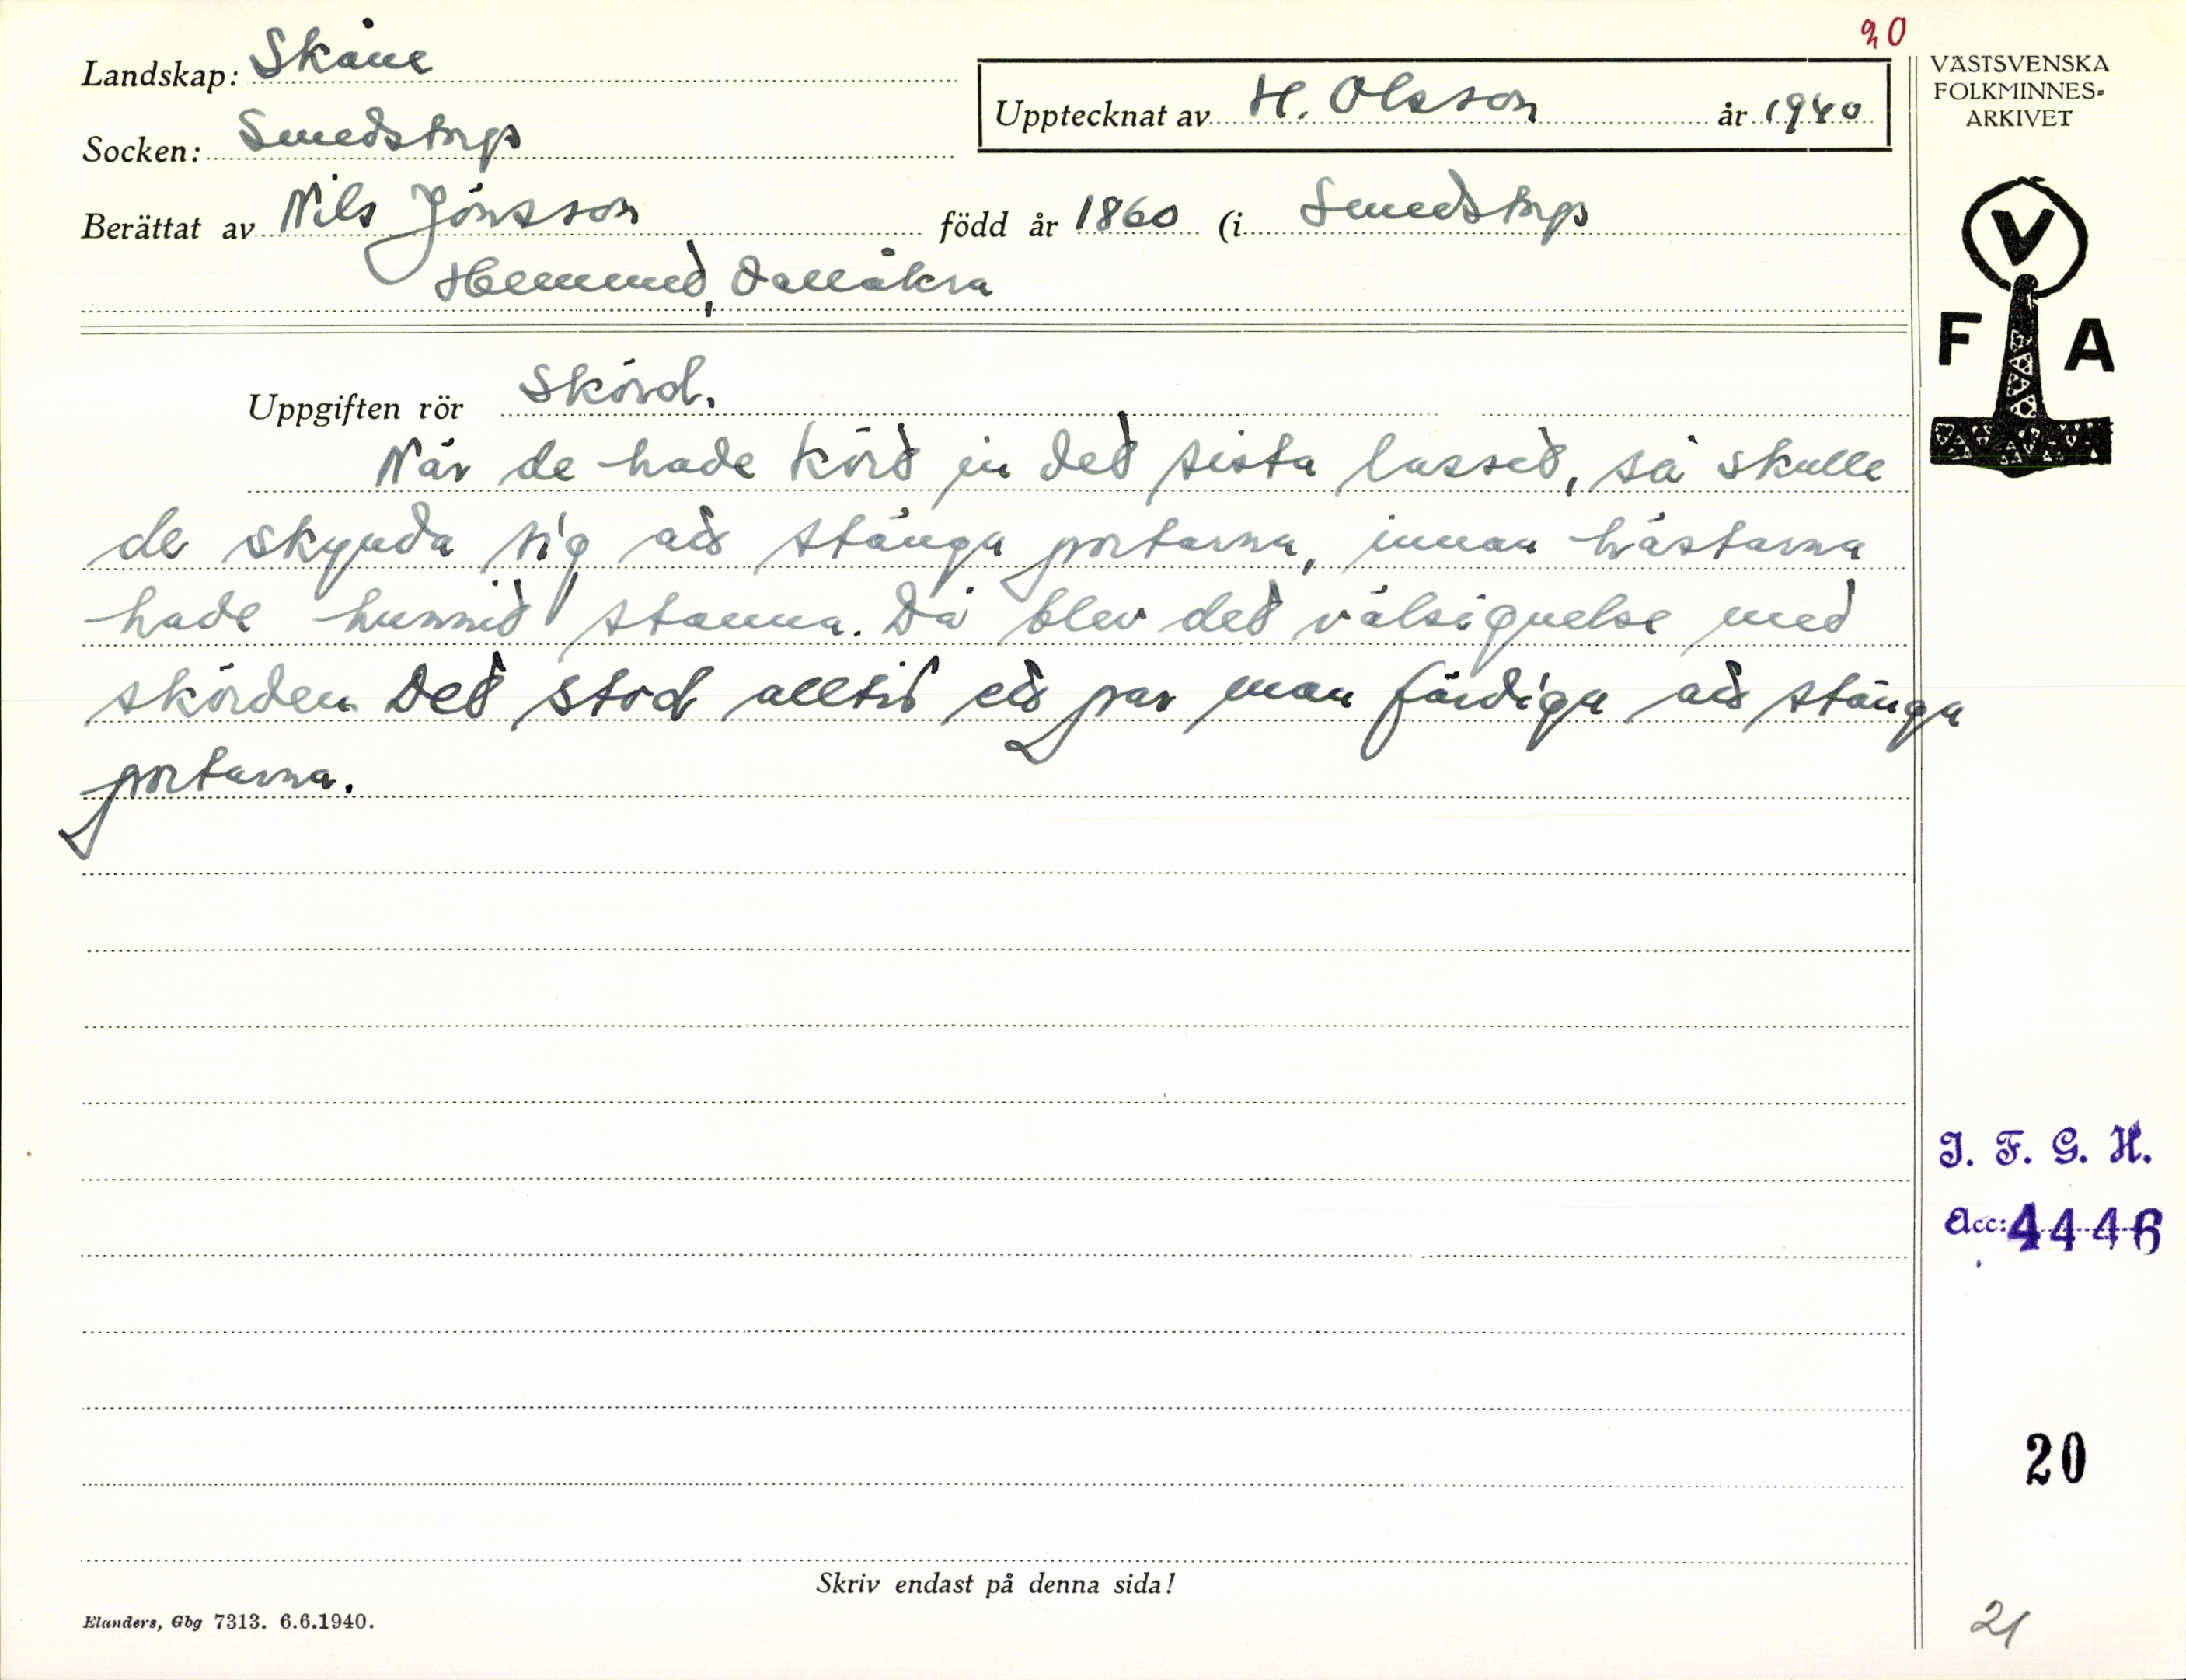 20
Landskap: Skåne
Upptecknat av H. Olsson år 1940
Socken: Smedstorp
Berättat av Nils Jönsson född år 1860 (i Smedstorp
Hemmed, Vallåkra
VÄSTSVENSKA
FOLKMINNES-
ARKIVET
V
F A
Uppgiften rör Skörd.
När de hade körd in ded sista lassed, så skulle
de skynda sig ad stänga portarna, innan hästarna
hade hunnid stanna. Då blev ded välsignelse med
skörden. Ded stod alltid ed par man färdiga ad stänga
portarna.
I. F. G. H.
Acc: 4446
20
Skriv endast på denna sida!
Elanders, Gbg 7313. 6.6.1940.
21